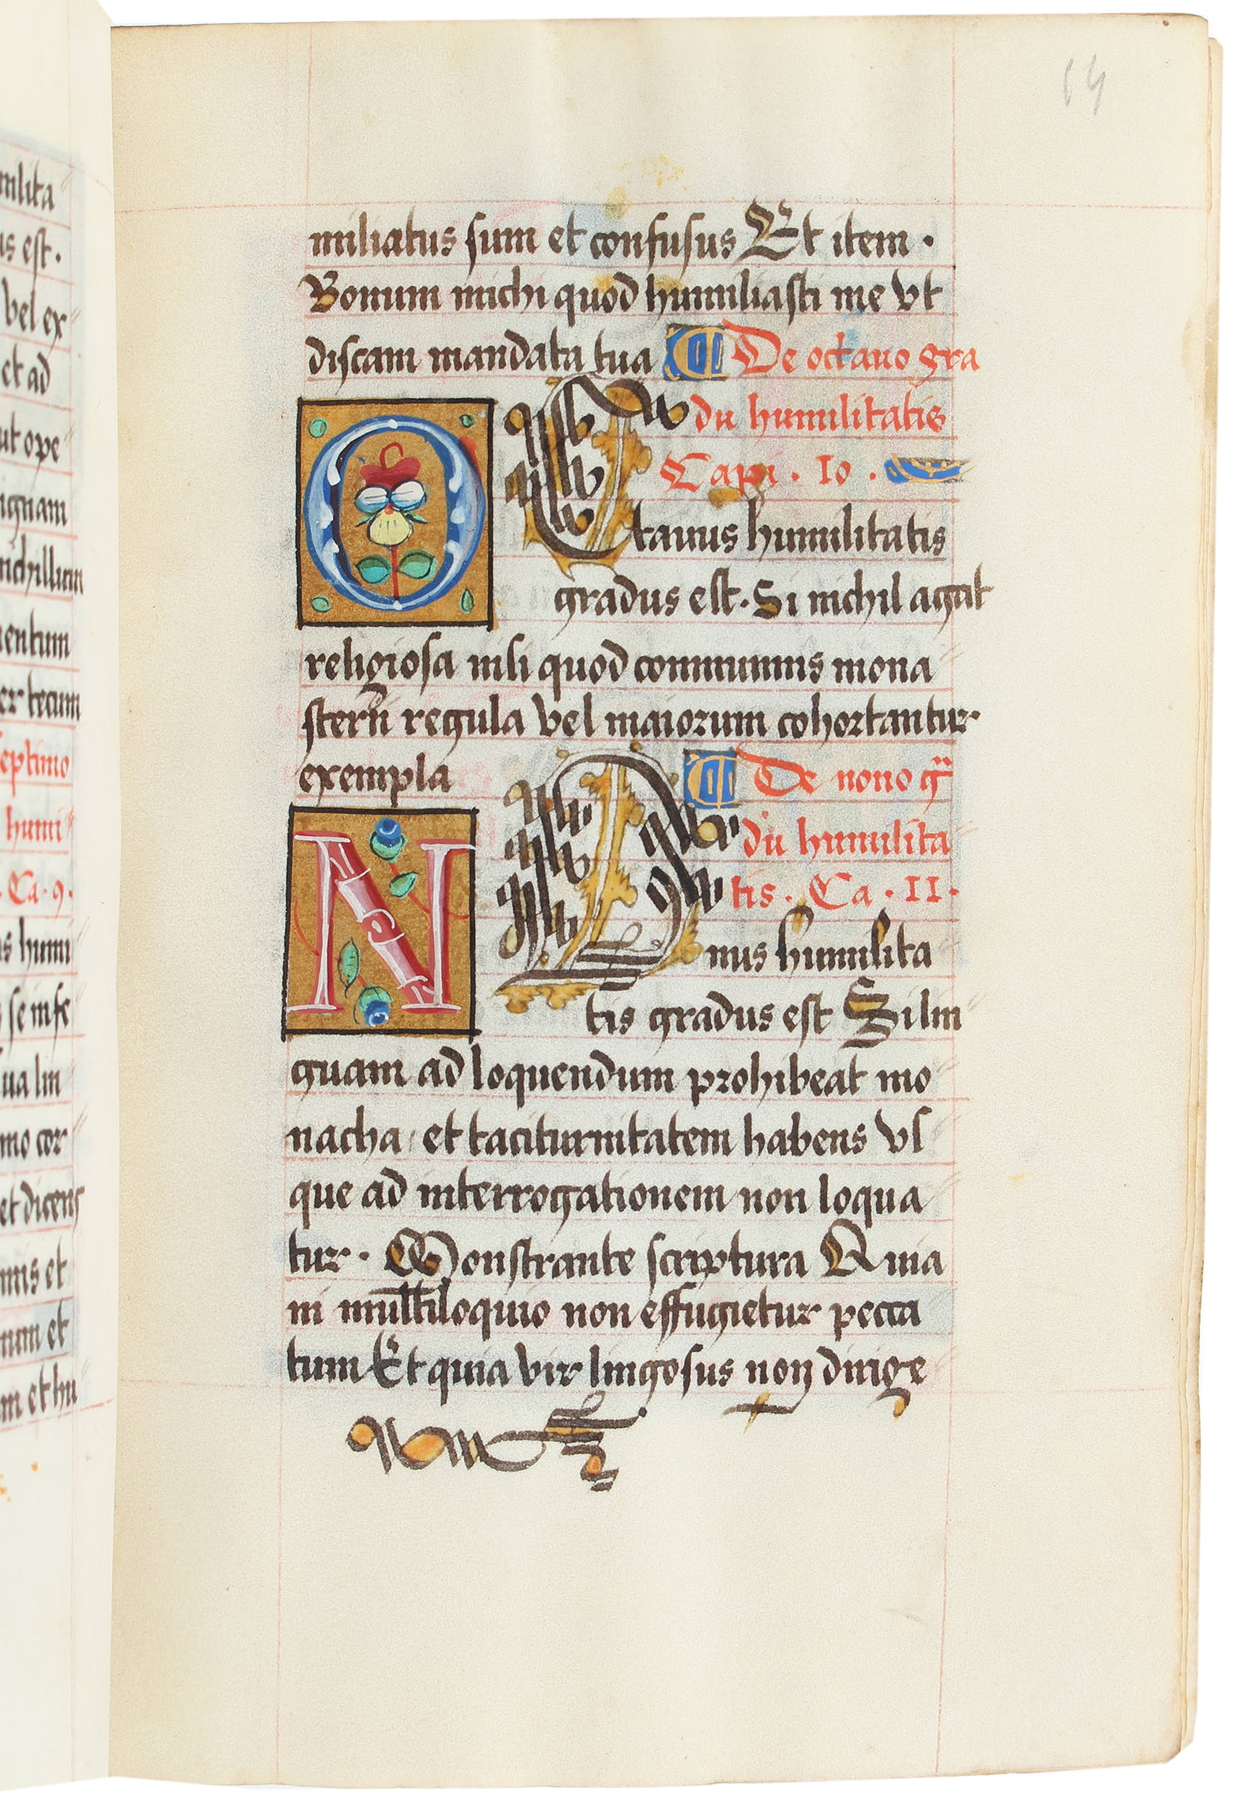 milita
us est.
vel ex
et ad
ut ope
ignam
nichillum
mentum
er tecum
septimo
humi
. Ca . 9 .
s humi
se infe
ua lin
mo cor
et dicens
mis et
num et
m et hu
64
miliatus sum et confusus Et item .
Bonum michi quod humiliasti me vt
discam mandata tua De octauo gra
du humilitatis
Capi . 10 .
OCtauus humilitatis
gradus est. Si nichil agat
religiosa nisi quod communis mona
sterii regula vel maiorum cohortantur
exempla De nono gͣ
du humilita
tis . Ca . 11 .
NOnus humilita
tis gradus est Si lin
guam ad loquendum prohibeat mo
nacha et taciturnitatem habens vs
que ad interrogationem non loqua
tur . Monstrante scriptura Quia
in multiloquio non effugietur pecca
tum Et quia vir lingosus non dirige
tur